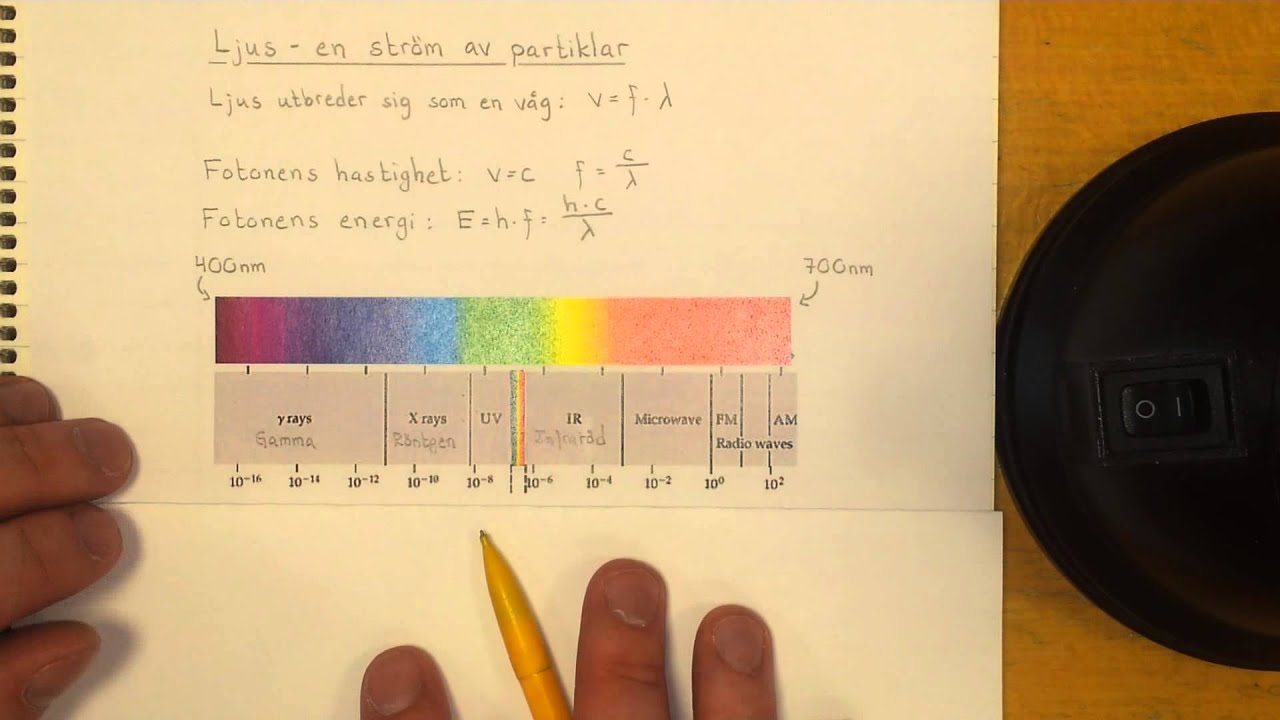 Ljus - en ström av partiklar
Ljus utbreder sig som en våg: v = f · λ
Fotonens hastighet: v = c f = c/λ
Fotonens energi: E = h · f = h · c/λ
400nm 700nm
γ rays X rays UV IR Microwave FM AM
Gamma Röntgen Infraröd Radio waves
10⁻¹⁶ 10⁻¹⁴ 10⁻¹² 10⁻¹⁰ 10⁻⁸ 10⁻⁶ 10⁻⁴ 10⁻² 10⁰ 10²
O I